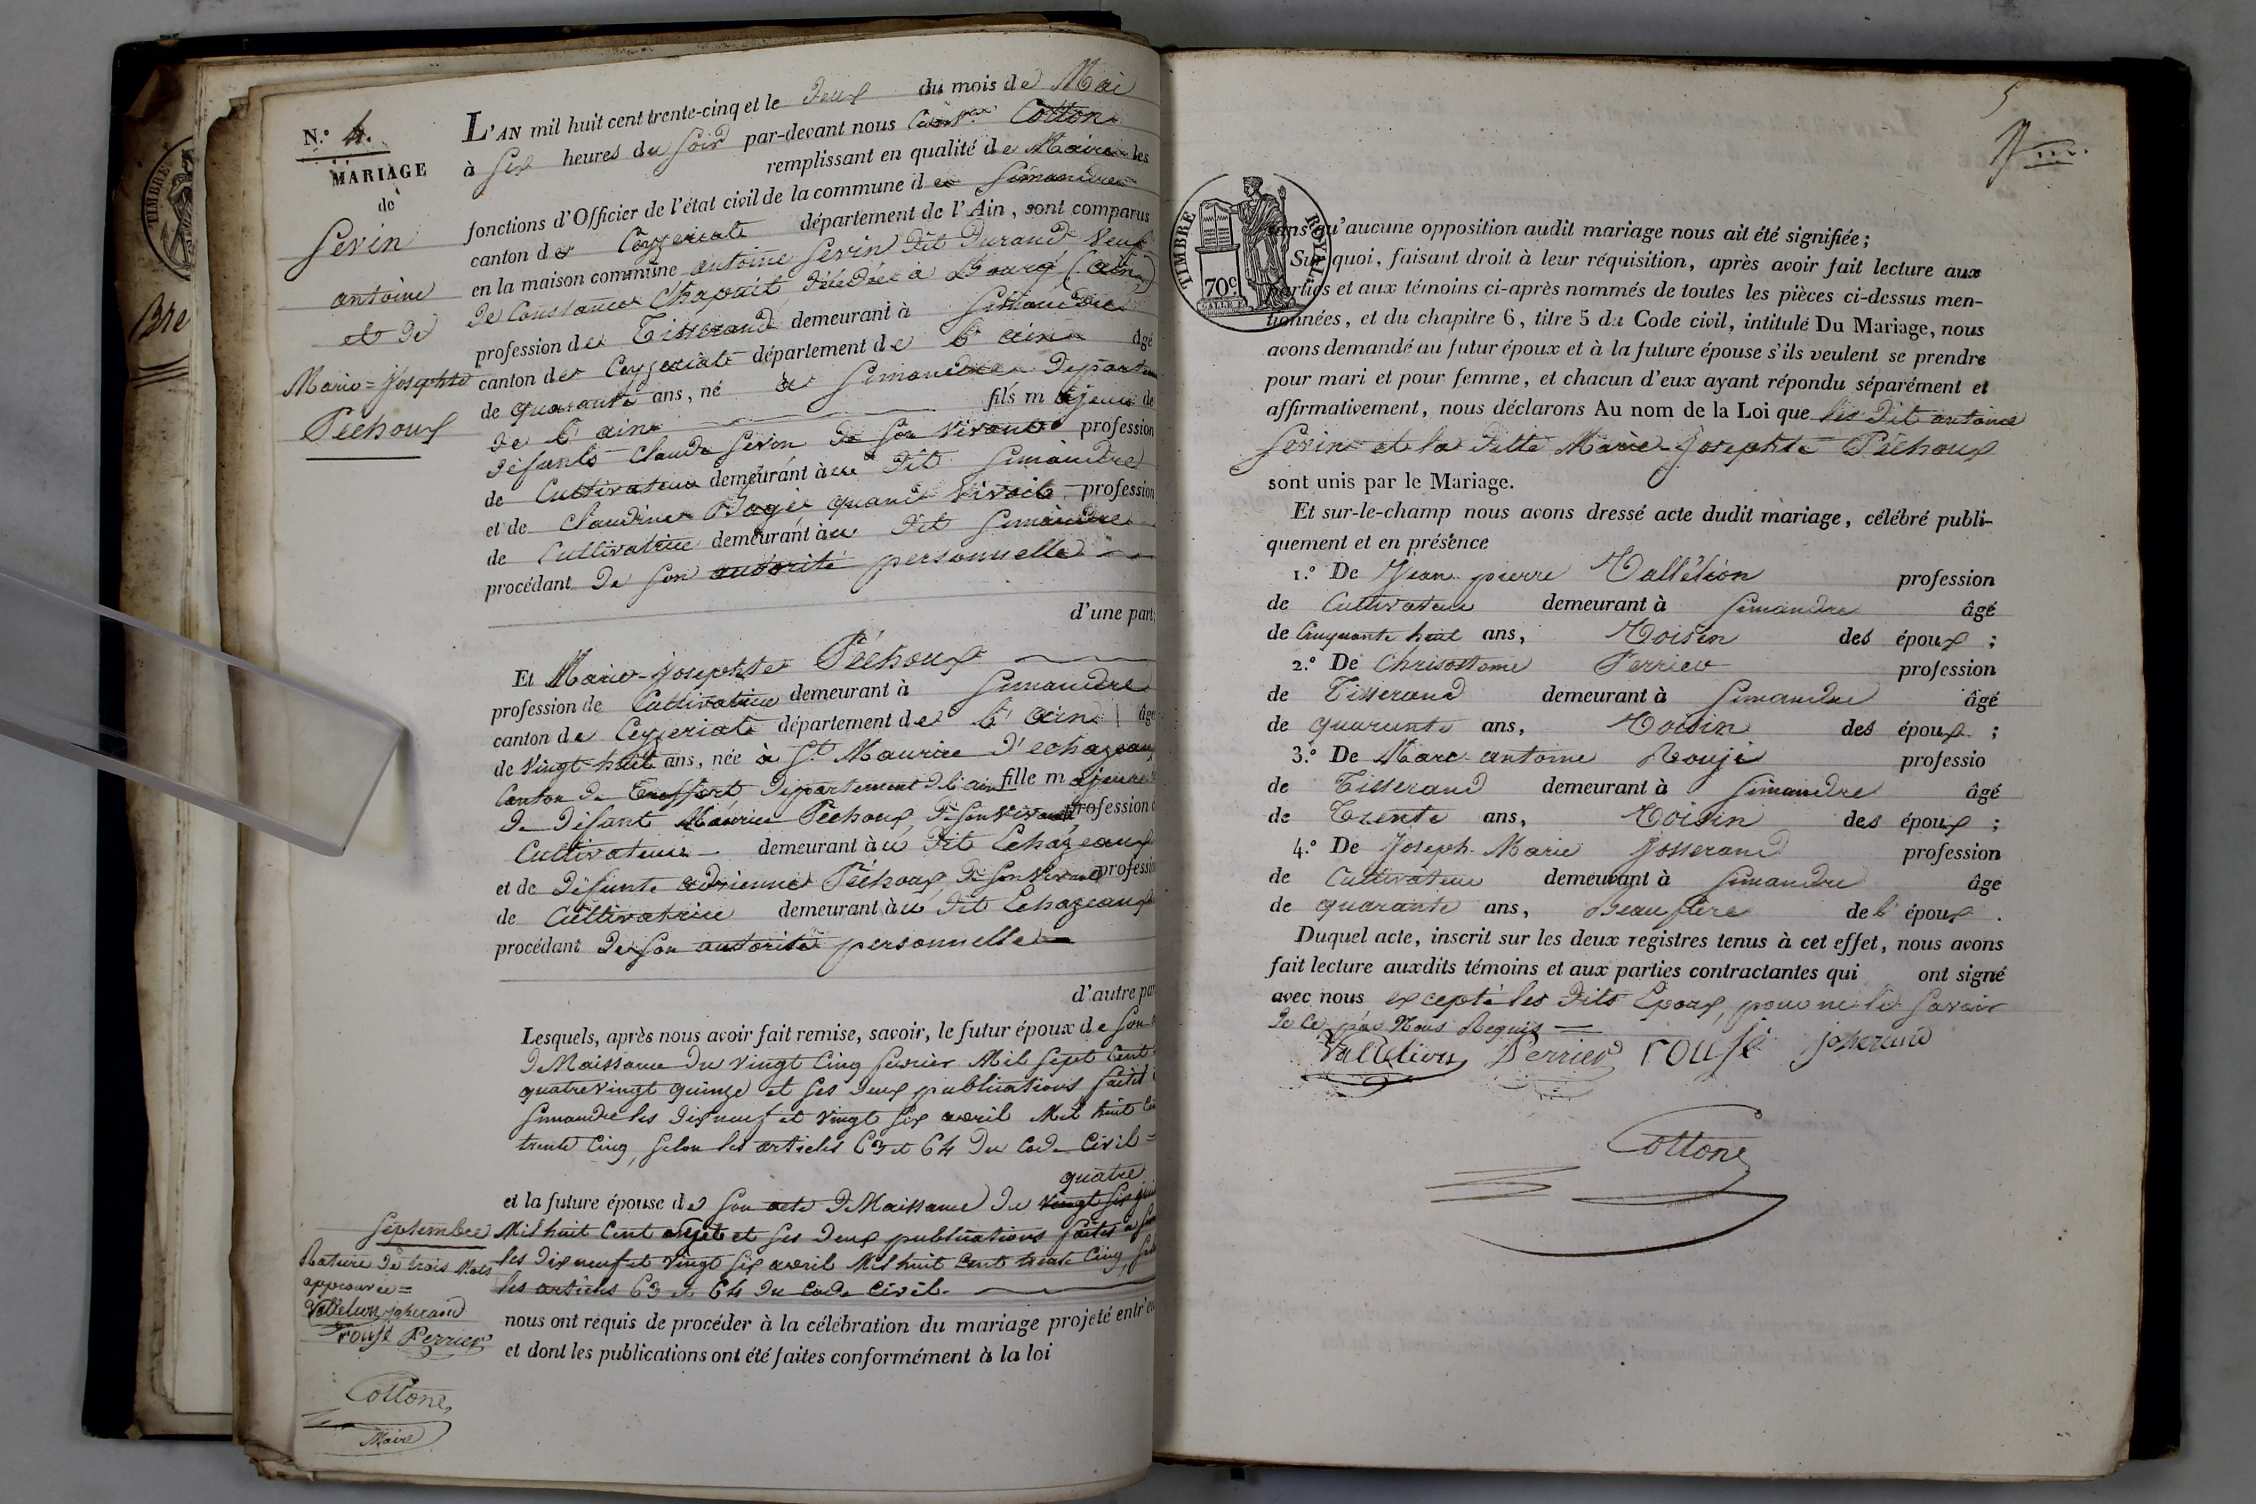 N.º 4.
MARIAGE
de
Sevin
antoine
et de
Marie=Josephte
Péchoux
L'AN mil huit cent trente-cinq et le deux du mois de Mai
à six heures du soir par-devant nous Cotton
remplissant en qualité de Maire les
fonctions d'Officier de l'état civil de la commune de Simandre
canton de Ceyzeriat département de l'Ain, sont comparus
en la maison commune antoine Sevin dit Durand veuf
de Constance Chapuit, décédée à Bourg (ain)
profession de Tisserand demeurant à Simandre
canton de Ceyzeriat département de l'ain âgé
de quarante ans, né à Simandre Departem
de l'ain fils majeur de
défunts Claude Sevin de son vivant profession
de Cultivateur demeurant au dit Simandre
et de Claudine quand vivait profession
de Cultivatrice demeurant au dit Simandre
procédant de son autorité personnelle
d'une part;
Et Marie-Josephte Péchoux
profession de Cultivatrice demeurant à Simandre
canton de Ceyzeriat département de l'ain âgé
de vingt-huit ans, née à St Maurice d'echazeaux
Canton de Treffort département de l'ain fille majeure
de défunt Maurice Péchoux, de son vivant profession d
Cultivateur demeurant au dit Echazeaux
et de défunte adrienne Péchoux, de son vivant profession
de Cultivatrice demeurant au dit Echazeaux
procédant de son autorité personnelle
d'autre par
Lesquels, après nous avoir fait remise, savoir, le futur époux de son
de Naissance du vingt cinq fevrier Mil sept cent
quatre vingt quinze et ses deux publications faites
Simandre les dix neuf et vingt six avril Mil huit Ce
trente Cinq, selon les articles 63 et 64 du Code Civil=
quatre
et la future épouse de son acte de Naissance du vingt six jui
Septembre Mil huit Cent sept et ses deux publications faites à
les dix neuf et vingt six avril Mil huit Cent trente Cinq,
les articles 63 et 64 du Code Civil.
nous ont requis de procéder à la célébration du mariage projeté entr'eu
et dont les publications ont été faites conformément à la loi
Rature de trois Mots
approuvée=
Vallélion Josserand
rousé Perrier
Cottone
Maire
TIMBRE
Bre
5
TIMBRE ROYAL
70c.
sans qu'aucune opposition audit mariage nous ait été signifiée;
Sur quoi, faisant droit à leur réquisition, après avoir fait lecture aux
parties et aux témoins ci-après nommés de toutes les pièces ci-dessus men-
tionnées, et du chapitre 6, titre 5 du Code civil, intitulé Du Mariage, nous
avons demandé au futur époux et à la future épouse s'ils veulent se prendre
pour mari et pour femme, et chacun d'eux ayant répondu séparément et
affirmativement, nous déclarons Au nom de la Loi que les dit antoine
Sevin et la ditte Marie-Josephte Péchoux
sont unis par le Mariage.
Et sur-le-champ nous avons dressé acte dudit mariage, célébré publi-
quement et en présence
1.º De Jean pierre Vallélion profession
de Cultivateur demeurant à Simandre âgé
de Cinquante huit ans, Voisin des époux;
2.º De Chrisostome Perrier profession
de Tisserand demeurant à Simandre âgé
de quarante ans, Voisin des époux;
3.º De Marc antoine Rousé professio
de Tisserand demeurant à Simandre âgé
de Trente ans, Voisin des époux;
4.º De Joseph-Marie Josserand profession
de Cultivateur demeurant à Simandre âge
de quarante ans, Beaufrère de l'époux.
Duquel acte, inscrit sur les deux registres tenus à cet effet, nous avons
fait lecture auxdits témoins et aux parties contractantes qui ont signé
avec nous excepté les dits Epoux, pour ne le savoir
de ce par Nous Requis=
Vallélion Perrier rousé Josserand
Cottone